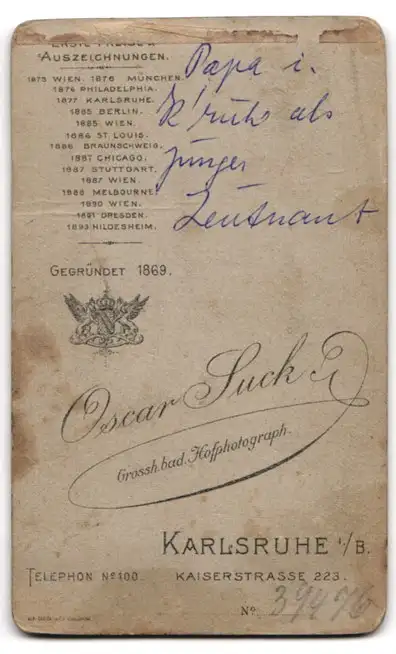 ERSTE PREISE U.
AUSZEICHNUNGEN.
1873 WIEN. 1876 MÜNCHEN.
1876 PHILADELPHIA.
1877 KARLSRUHE.
1885 BERLIN.
1885 WIEN.
1886 ST. LOUIS.
1886 BRAUNSCHWEIG.
1887 CHICAGO.
1887 STUTTGART.
1887 WIEN.
1888 MELBOURNE.
1890 WIEN.
1891 DRESDEN.
1893 HILDESHEIM.
Papa i.
K'ruhe als
junger
Leutnant
GEGRÜNDET 1869.
Oscar Suck
Grossh. bad. Hofphotograph.
KARLSRUHE i/B.
TELEPHON No 100. KAISERSTRASSE 223.
No. 39476